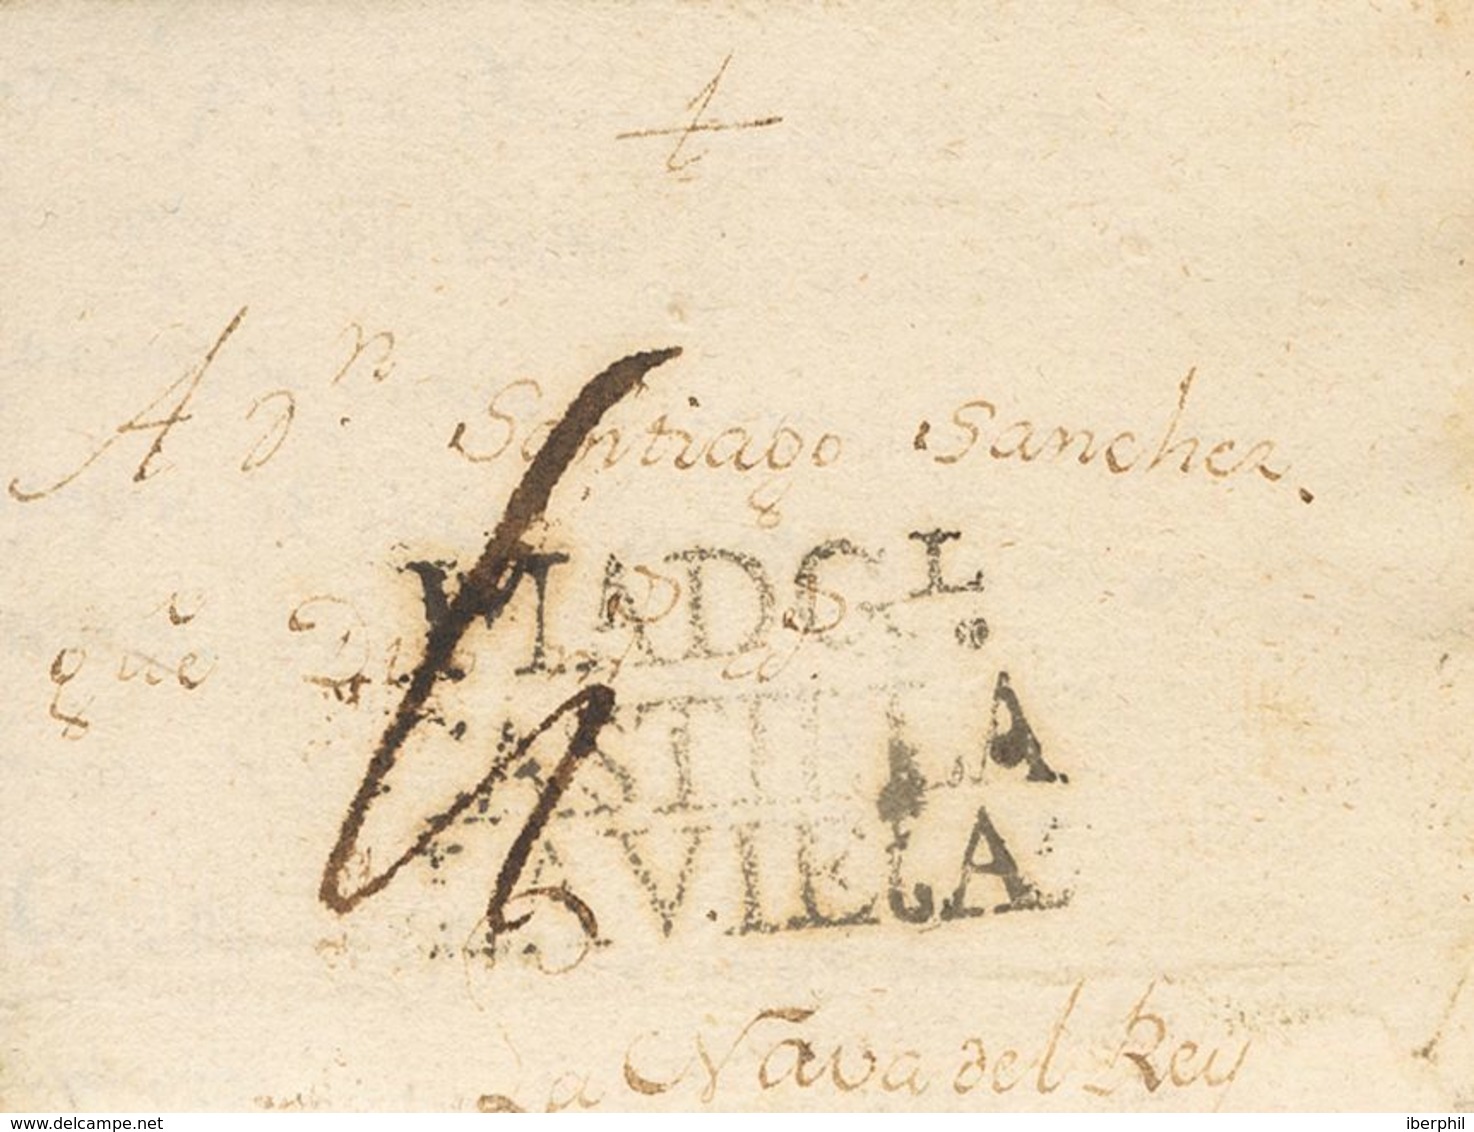 A Dn. Santiago Sanchez.
que Dios
VIA D GL.
CASTILLA
LA VIEJA
La Nava del Rey
www.delcampe.net
iberphil